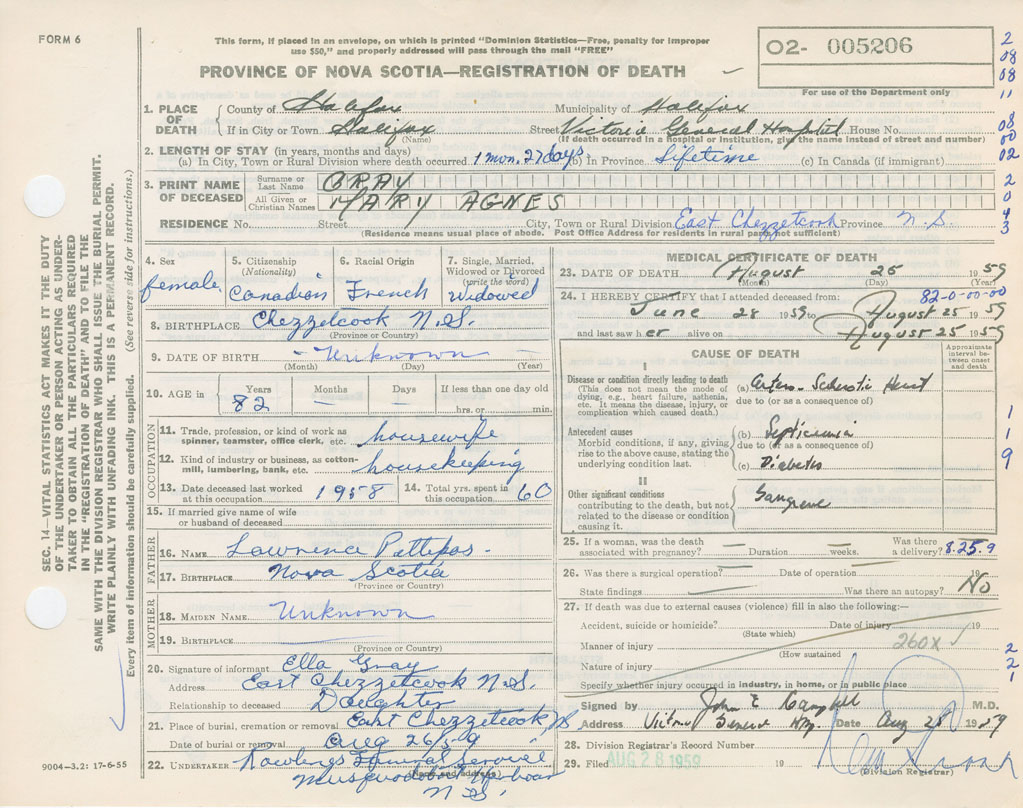 FORM 6
This form, if placed in an envelope, on which is printed "Dominion Statistics—Free, penalty for improper
use $50," and properly addressed will pass through the mail "FREE"
PROVINCE OF NOVA SCOTIA—REGISTRATION OF DEATH
02- 005206
For use of the Department only
2
08
08
11
08
00
02
2
0
4
3
1
1
9
2
2
1
SEC. 14—VITAL STATISTICS ACT MAKES IT THE DUTY
OF THE UNDERTAKER OR PERSON ACTING AS UNDER-
TAKER TO OBTAIN ALL THE PARTICULARS REQUIRED
IN THE "REGISTRATION OF DEATH" AND TO FILE THE
SAME WITH THE DIVISION REGISTRAR WHO SHALL ISSUE THE BURIAL PERMIT.
WRITE PLAINLY WITH UNFADING INK. THIS IS A PERMANENT RECORD.
Every item of information should be carefully supplied. (See reverse side for instructions.)
1. PLACE OF DEATH County of Halifax Municipality of Halifax
If in City or Town Halifax Street Victoria General Hospital House No.
(Name) (If death occurred in a hospital or institution, give the name instead of street and number)
2. LENGTH OF STAY (in years, months and days)
(a) In City, Town or Rural Division where death occurred 1 mon. 27 days (b) In Province Lifetime (c) In Canada (if immigrant)
3. PRINT NAME OF DECEASED Surname or Last Name GRAY
All Given or Christian Names MARY AGNES
RESIDENCE No. Street City, Town or Rural Division East Chezzetcook Province N.S.
(Residence means usual place of abode. Post Office Address for residents in rural parts not sufficient)
4. Sex female
5. Citizenship (Nationality) Canadian
6. Racial Origin French
7. Single, Married, Widowed or Divorced (write the word) Widowed
8. BIRTHPLACE Chezzetcook N.S.
(Province or Country)
9. DATE OF BIRTH - Unknown -
(Month) (Day) (Year)
10. AGE in Years 82 Months — Days — If less than one day old hrs. or min.
OCCUPATION
11. Trade, profession, or kind of work as spinner, teamster, office clerk, etc. housewife
12. Kind of industry or business, as cotton-mill, lumbering, bank, etc. housekeeping
13. Date deceased last worked at this occupation 1958 14. Total yrs. spent in this occupation 60
15. If married give name of wife or husband of deceased
FATHER
16. NAME Lawrence Pettipas
17. BIRTHPLACE Nova Scotia
(Province or Country)
MOTHER
18. MAIDEN NAME Unknown
19. BIRTHPLACE
(Province or Country)
20. Signature of informant Ella Gray
Address East Chezzetcook N.S.
Relationship to deceased Daughter
21. Place of burial, cremation or removal East Chezzetcook N.S.
Date of burial or removal Aug 26/59
22. UNDERTAKER Rowlings Funeral Service
Musquodoboit Harbour
(Name and address)
N.S.
9004—3.2: 17-6-55
MEDICAL CERTIFICATE OF DEATH
23. DATE OF DEATH August 25 1959
(Month) (Day) (Year)
82-0-00-00
24. I HEREBY CERTIFY that I attended deceased from:
June 28 1959 to August 25 1959
and last saw her alive on August 25 1959
CAUSE OF DEATH
Approximate interval between onset and death
I
Disease or condition directly leading to death
(This does not mean the mode of dying, e.g., heart failure, asthenia, etc. It means the disease, injury, or complication which caused death.)
(a) Arterio-Sclerotic Heart
due to (or as a consequence of)
Antecedent causes
Morbid conditions, if any, giving rise to the above cause, stating the underlying condition last.
(b) Septicemia
due to (or as a consequence of)
(c) Diabetes
II
Other significant conditions
contributing to the death, but not related to the disease or condition causing it.
Gangrene
25. If a woman, was the death associated with pregnancy? — Duration — weeks. Was there a delivery? 8.25.9
26. Was there a surgical operation? — Date of operation
State findings Was there an autopsy? No
27. If death was due to external causes (violence) fill in also the following:—
Accident, suicide or homicide? Date of injury 19
(State which)
Manner of injury 260X
(How sustained)
Nature of injury
Specify whether injury occurred in industry, in home, or in public place
Signed by John E Campbell M.D.
Address Victoria General Date Aug 28 1959
28. Division Registrar's Record Number
29. Filed AUG 28 1959 19
(Division Registrar)